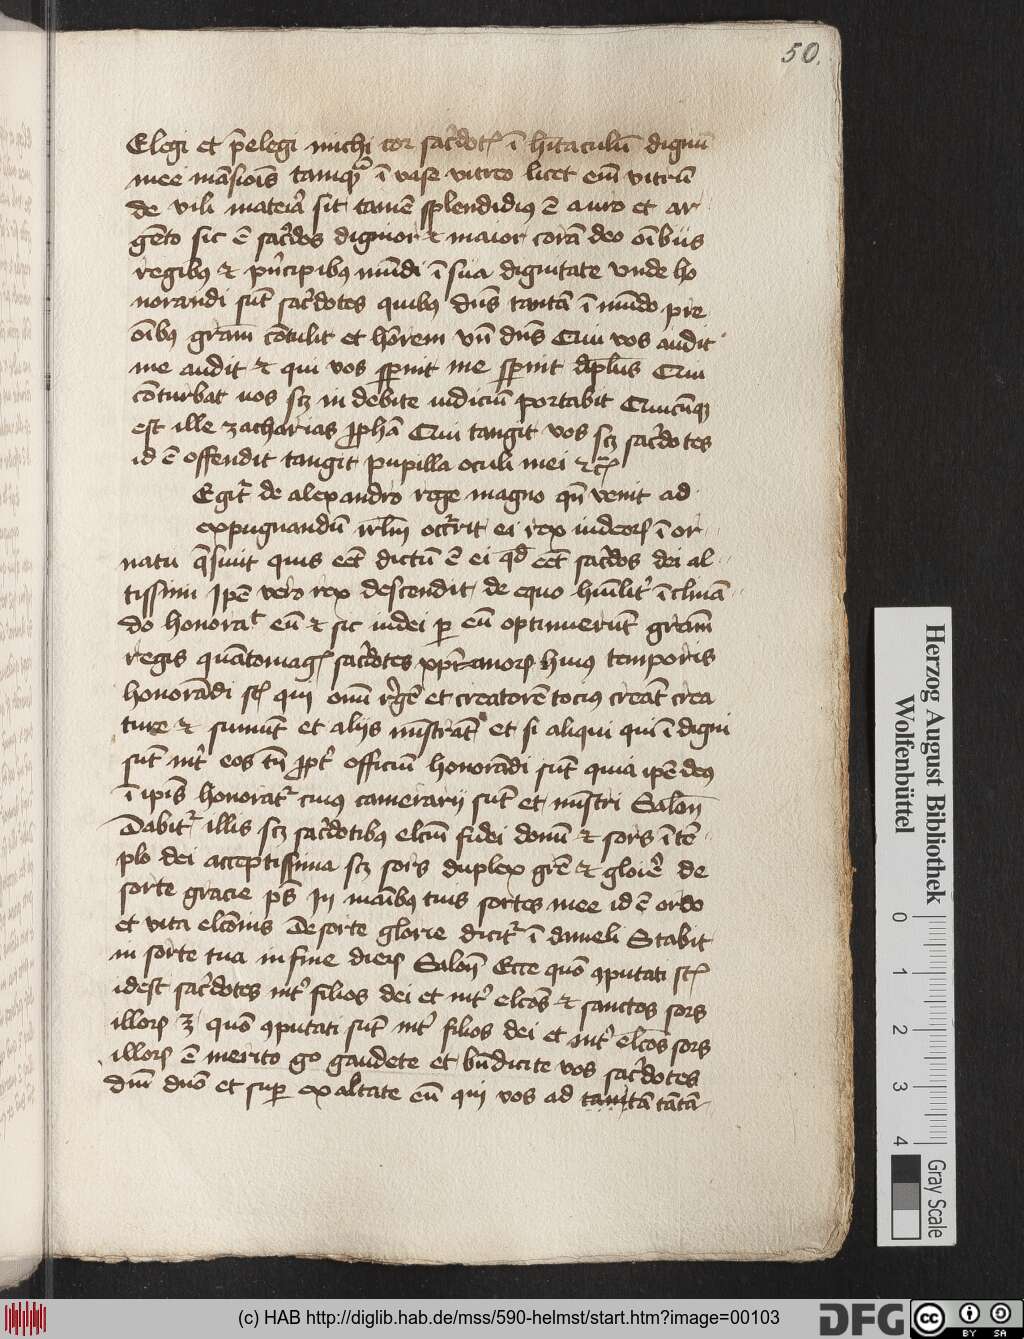 50.
Elegi et p̄elegi michi cor sac̓dotꝭ ī hītaculū dignū
mee māsiois tamqᷓ ī vase vitreo licet em̄ vitrū
de vili mateīa sit tamē splendidiꝰ ē auro et ar
gēto sic ē sac̓dos dignior ⁊ maior corā deo oībus
regibꝰ ⁊ pⁱncipibꝰ mūdi ī sua dignitate vnde ho
norandi sūt sac̓dotes quibꝰ dn̄s tantā ī mūdo pre
oībꝰ gram̄ cōtulit et ho̅rem vn̄ dn̄s Qui vos audit
me audit ⁊ qui vos spernit me spernit Qui
cōturbat uos scꝫ in debite iudiciū portabit Quicūqꝫ
est ille zacharias Qui tangit vos scꝫ sac̓dotes
id ē offendit tangit pupilla oculi mei ⁊c̄
Egit̓ de alexandro rege magno qn̄ venit ad
expugnandū irl̄m occ̓rit ei rex iudeoꝝ ī or
natu q̄siuit quis eēt dictū ē ei qd̄ eēt sac̓dos dei al
tissimi Ipē vero rex descendit de equo hūilit̓ īclinā
do honoraᵗ eū ⁊ sic iudei ꝑ eū optinuerūt gram̄
regis quātomagꝭ sac̓dotes huiꝰ temporis
honorādi st̄ qui et creatorē tociꝰ creāt crea
ture ⁊ sumūt et alijs mīstrāt et si aliqui qui īdigni
sūt int̓ eos tn̄ ꝓpt̓ officiū honorādi sūt quia ipē deꝰ
ī ipīs honorat᷑ cuiꝰ camerarij sūt et mīstri Salon̄
Dabit᷑ illis scꝫ sac̓dotibꝰ elcm̄ fidei donū ⁊ sors ī tē
plo dei acceptissima scꝫ sors duplex gr̄e ⁊ gloīe de
sorte gracie ps̄ In māibꝰ tuis sortes mee id ē ordo
et vita De sorte glorie dicit᷑ ī danieli Stabit
in sorte tua in fine dieꝝ Salon̄ Ecce quō ꝯputati st̄
idest sac̓dotes int̓ filios dei et int̓ elcōs ⁊ sanctos sors
illoꝝ ꝫ quō ꝯputati sūt int̓ filios dei et int̓ elcōs sors
illoꝝ ē merito gᵒ gaudete et bn̄dicite vos sac̓dotes
dm̄ et suꝑ exaltate eū qui vos ad tantā tātā
Herzog August Bibliothek
Wolfenbüttel
0 1 2 3 4
Gray Scale
(c) HAB http://diglib.hab.de/mss/590-helmst/start.htm?image=00103
DFG
cc BY SA